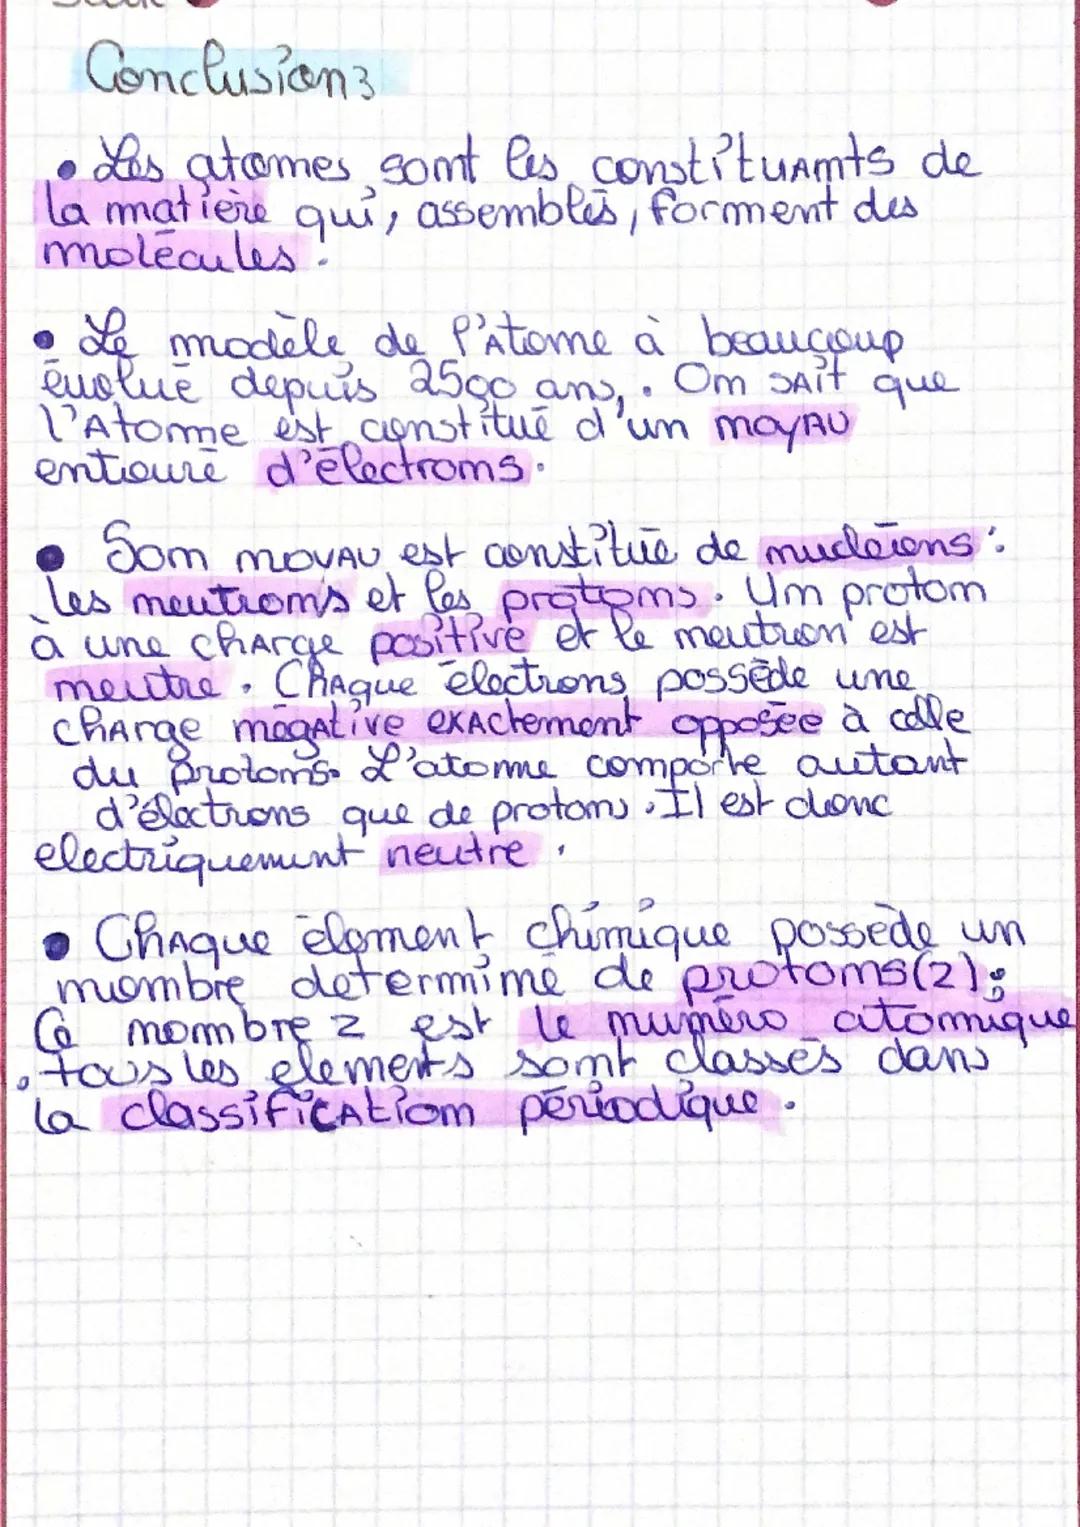 Conclusion :
• Les atomes sont les constituants de
la matière qui, assemblés, forment des
molécules.
• Le modèle de l'Atome à beaucoup
évolué depuis 2500 ans. On sAit que
l'Atome est constitué d'un noyAU
entouré d'électrons.
• Son noyAU est constitué de nucléons :
les neutrons et les protons. Un proton
à une chArge positive et le neutron est
neutre. ChAque électrons possède une
chArge négAtive exActement opposée à celle
du protons. L'atome comporte autant
d'électrons que de protons. Il est donc
electriquement neutre.
• ChAque élement chimique possède un
nombre determiné de protons(z) ;
Ce nombre z est le numéro atomique
, tous les elements sont classés dans
la classificAtion périodique.